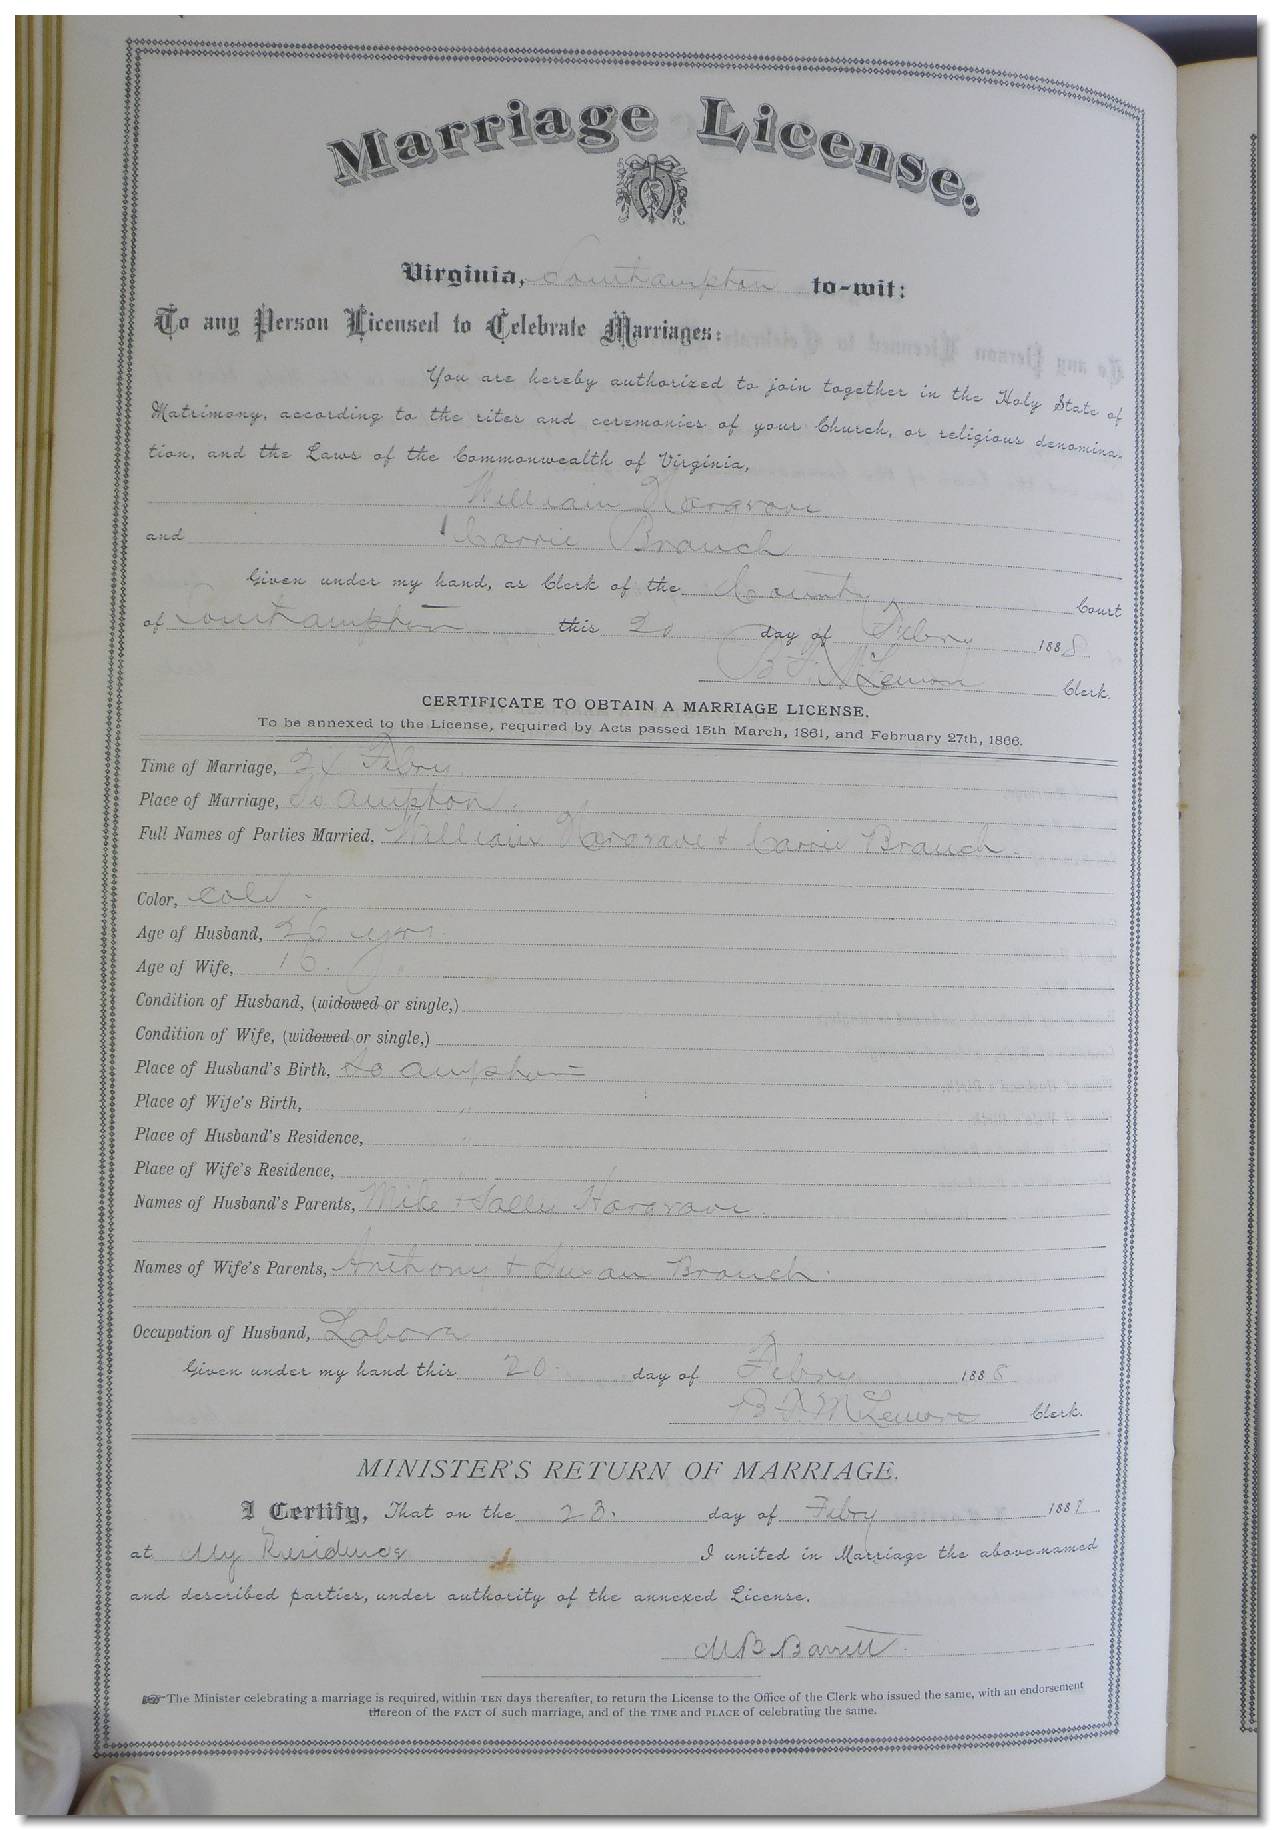 Marriage License.
Virginia, Southampton to-wit:
To any Person Licensed to Celebrate Marriages:
You are hereby authorized to join together in the Holy State of
Matrimony, according to the rites and ceremonies of your Church, or religious denomina-
tion, and the Laws of the Commonwealth of Virginia,
William Hargrave
and Carrie Branch
Given under my hand, as Clerk of the County Court
of Southampton this 20 day of Febry 1888
B. F. McLemore Clerk.
CERTIFICATE TO OBTAIN A MARRIAGE LICENSE.
To be annexed to the License, required by Acts passed 15th March, 1861, and February 27th, 1866.
Time of Marriage, Febry
Place of Marriage, So ampton.
Full Names of Parties Married, William Hargrave & Carrie Branch.
Color, cold.
Age of Husband, 26 yrs
Age of Wife, 16. "
Condition of Husband, (widowed or single,)
Condition of Wife, (widowed or single,)
Place of Husband's Birth, So ampton
Place of Wife's Birth, "
Place of Husband's Residence, "
Place of Wife's Residence, "
Names of Husband's Parents, Mike & Salley Hargrave.
Names of Wife's Parents, Anthony & Susan Branch.
Occupation of Husband, Labore
Given under my hand this 20 day of Febry 1888
B F McLemore Clerk.
MINISTER'S RETURN OF MARRIAGE.
I Certify, That on the 23. day of Febry 188
at My Residence I united in Marriage the above-named
and described parties, under authority of the annexed License.
M B Barrett.
The Minister celebrating a marriage is required, within TEN days thereafter, to return the License to the Office of the Clerk who issued the same, with an endorsement
thereon of the FACT of such marriage, and of the TIME and PLACE of celebrating the same.